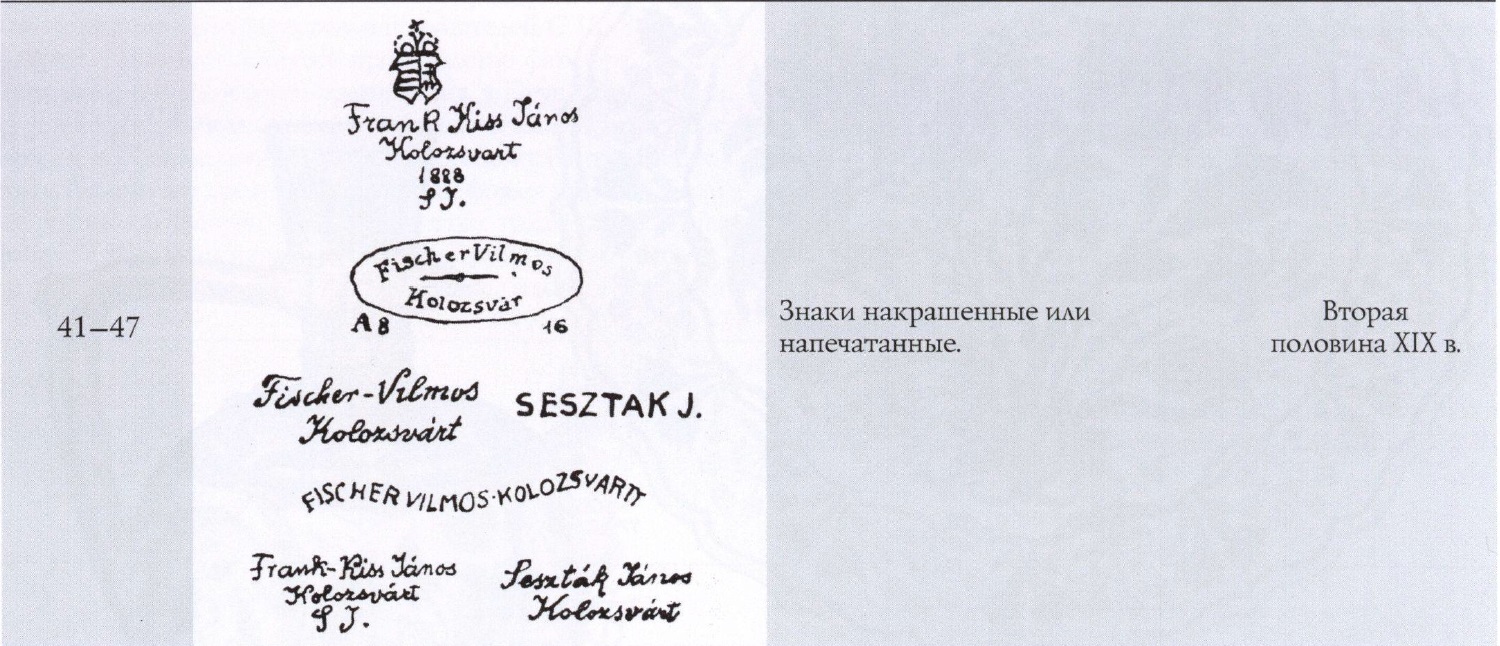 Frank Kiss János
Kolozsvart
1888
S J.
Fischer Vilmos
Kolozsvár
A 8 16
41–47
Знаки накрашенные или
напечатанные.
Вторая
половина XIX в.
Fischer-Vilmos
Kolozsvárt
SESZTAK J.
FISCHER VILMOS·KOLOZSVARTT
Frank-Kiss János
Kolozsvárt
S J.
Seszták János
Kolozsvárt